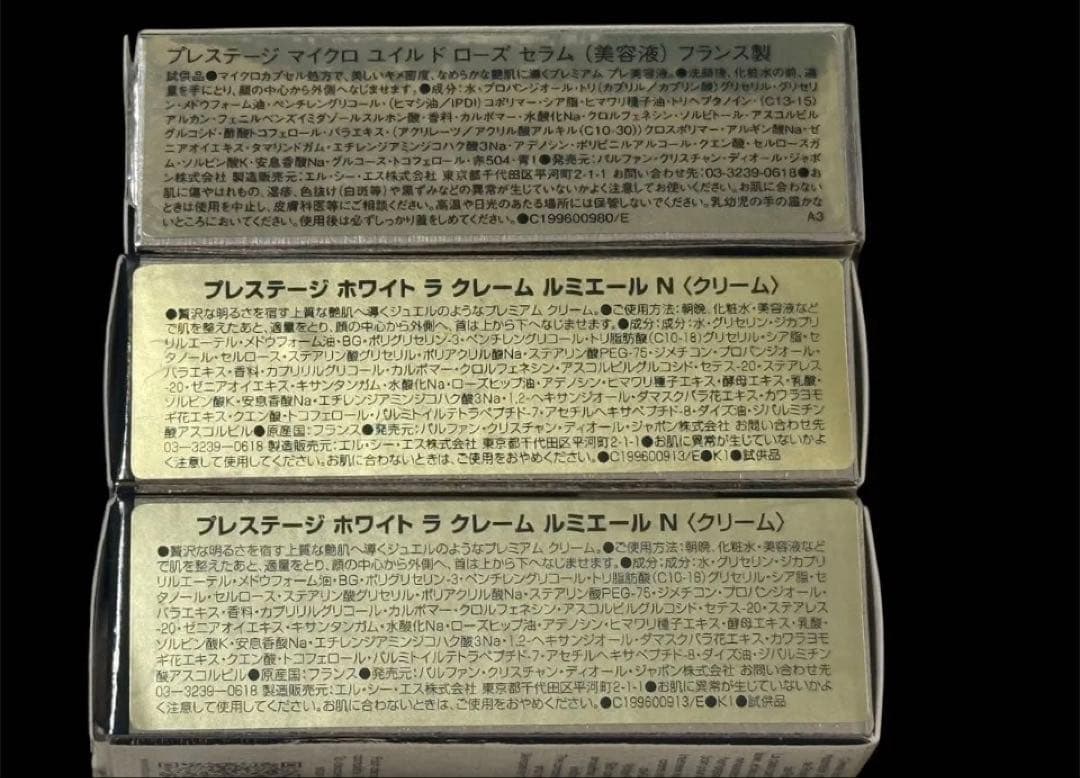 プレステージ マイクロ ユイル ド ローズ セラム（美容液）フランス製
試供品●マイクロカプセル処方で、美しいキメ密度、なめらかな艶肌に導くプレミアム プレ美容液。●洗顔後、化粧水の前、適
量を手にとり、顔の中心から外側へなじませます。●成分：水・プロパンジオール・トリ（カプリル／カプリン酸）グリセリル・グリセリ
ン・メドウフォーム油・ペンチレングリコール・（ヒマシ油／IPDI）コポリマー・シア脂・ヒマワリ種子油・トリヘプタノイン・（C13-15）
アルカン・フェニルベンズイミダゾールスルホン酸・香料・カルボマー・水酸化Na・クロルフェネシン・ソルビトール・アスコルビル
グルコシド・酢酸トコフェロール・バラエキス・（アクリレーツ／アクリル酸アルキル（C10-30））クロスポリマー・アルギン酸Na・ゼ
ニアオイエキス・タマリンドガム・エチレンジアミンジコハク酸3Na・アデノシン・ポリビニルアルコール・クエン酸・セルロースガ
ム・ソルビン酸K・安息香酸Na・グルコース・トコフェロール・赤504・青1●発売元：パルファン・クリスチャン・ディオール・ジャポ
ン株式会社 製造販売元：エル・シー・エス株式会社 東京都千代田区平河町2-1-1 お問い合わせ先：03-3239-0618●お
肌に傷やはれもの、湿疹、色抜け（白斑等）や黒ずみなどの異常が生じていないかよく注意してお使いください。お肌に合わない
ときは使用を中止し、皮膚科医等にご相談ください。高温や日光のあたる場所には保管しないでください。乳幼児の手の届かな
いところにおいてください。使用後は必ずしっかり蓋をしめてください。●C199600980/E A3
プレステージ ホワイト ラ クレーム ルミエール N〈クリーム〉
●贅沢な明るさを宿す上質な艶肌へ導くジュエルのようなプレミアム クリーム。●ご使用方法：朝晩、化粧水・美容液など
で肌を整えたあと、適量をとり、顔の中心から外側へ、首は上から下へなじませます。●成分：成分：水・グリセリン・ジカプリ
リルエーテル・メドウフォーム油・BG・ポリグリセリン-3・ペンチレングリコール・トリ脂肪酸（C10-18）グリセリル・シア脂・セ
タノール・セルロース・ステアリン酸グリセリル・ポリアクリル酸Na・ステアリン酸PEG-75・ジメチコン・プロパンジオール・
バラエキス・香料・カプリリルグリコール・カルボマー・クロルフェネシン・アスコルビルグルコシド・セテス-20・ステアレス
-20・ゼニアオイエキス・キサンタンガム・水酸化Na・ローズヒップ油・アデノシン・ヒマワリ種子エキス・酵母エキス・乳酸・
ソルビン酸K・安息香酸Na・エチレンジアミンジコハク酸3Na・1,2-ヘキサンジオール・ダマスクバラ花エキス・カワラヨモ
ギ花エキス・クエン酸・トコフェロール・パルミトイルテトラペプチド-7・アセチルヘキサペプチド-8・ダイズ油・ジパルミチン
酸アスコルビル●原産国：フランス●発売元：パルファン・クリスチャン・ディオール・ジャポン株式会社 お問い合わせ先
03-3239-0618 製造販売元：エル・シー・エス株式会社 東京都千代田区平河町2-1-1●お肌に異常が生じていないかよ
く注意して使用してください。お肌に合わないときは、ご使用をおやめください。●C199600913/E●K1●試供品
プレステージ ホワイト ラ クレーム ルミエール N〈クリーム〉
●贅沢な明るさを宿す上質な艶肌へ導くジュエルのようなプレミアム クリーム。●ご使用方法：朝晩、化粧水・美容液など
で肌を整えたあと、適量をとり、顔の中心から外側へ、首は上から下へなじませます。●成分：成分：水・グリセリン・ジカプリ
リルエーテル・メドウフォーム油・BG・ポリグリセリン-3・ペンチレングリコール・トリ脂肪酸（C10-18）グリセリル・シア脂・セ
タノール・セルロース・ステアリン酸グリセリル・ポリアクリル酸Na・ステアリン酸PEG-75・ジメチコン・プロパンジオール・
バラエキス・香料・カプリリルグリコール・カルボマー・クロルフェネシン・アスコルビルグルコシド・セテス-20・ステアレス
-20・ゼニアオイエキス・キサンタンガム・水酸化Na・ローズヒップ油・アデノシン・ヒマワリ種子エキス・酵母エキス・乳酸・
ソルビン酸K・安息香酸Na・エチレンジアミンジコハク酸3Na・1,2-ヘキサンジオール・ダマスクバラ花エキス・カワラヨモ
ギ花エキス・クエン酸・トコフェロール・パルミトイルテトラペプチド-7・アセチルヘキサペプチド-8・ダイズ油・ジパルミチン
酸アスコルビル●原産国：フランス●発売元：パルファン・クリスチャン・ディオール・ジャポン株式会社 お問い合わせ先
03-3239-0618 製造販売元：エル・シー・エス株式会社 東京都千代田区平河町2-1-1●お肌に異常が生じていないかよ
く注意して使用してください。お肌に合わないときは、ご使用をおやめください。●C199600913/E●K1●試供品